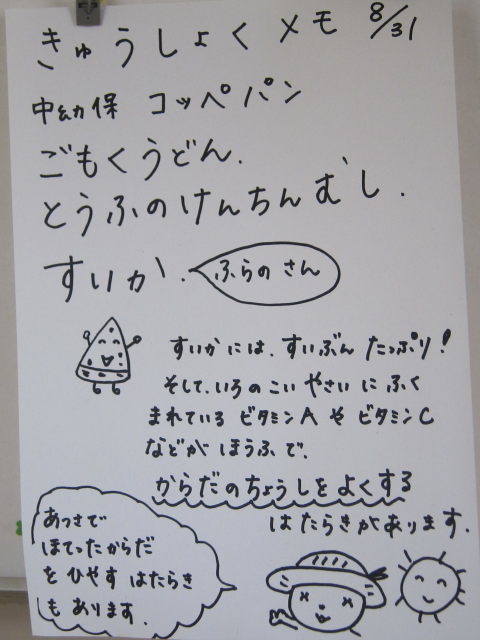 きゅうしょくメモ 8/31
中幼保 コッペパン
ごもくうどん.
とうふのけんちんむし.
すいか. ふらのさん
すいかには、すいぶん たっぷり!
そして、いろのこい やさい にふく
まれている ビタミンA や ビタミンC
などが ほうふで、
からだのちょうしをよくする
はたらきがあります.
あつさで
ほてったからだ
を ひやす はたらき
も あります.